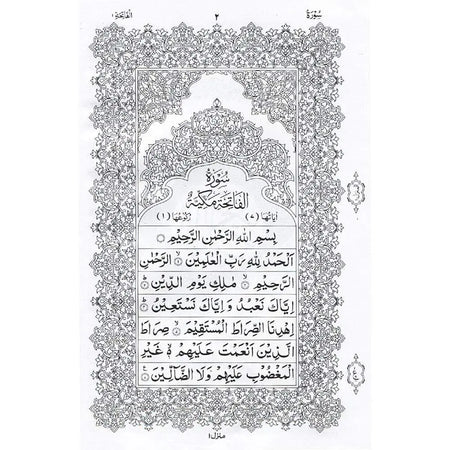 سُوْرَةُ ٢ الفَاتِحَة ١
سُوْرَةُ
الْفَاتِحَةِ مَكِّيَّةٌ
اٰيَاتُهَا (٧) رُكُوْعُهَا (١)
بِسْمِ اللهِ الرَّحْمٰنِ الرَّحِيْمِ
اَلْحَمْدُ لِلّٰهِ رَبِّ الْعٰلَمِيْنَ ۝١ الرَّحْمٰنِ
الرَّحِيْمِ ۝٢ مٰلِكِ يَوْمِ الدِّيْنِ ۝٣
اِيَّاكَ نَعْبُدُ وَ اِيَّاكَ نَسْتَعِيْنُ ۝٤
اِهْدِنَا الصِّرَاطَ الْمُسْتَقِيْمَ ۝٥ صِرَاطَ
الَّذِيْنَ اَنْعَمْتَ عَلَيْهِمْ ۝٦ غَيْرِ
الْمَغْضُوْبِ عَلَيْهِمْ وَلَا الضَّآلِّيْنَ ۝٧
منزل ١